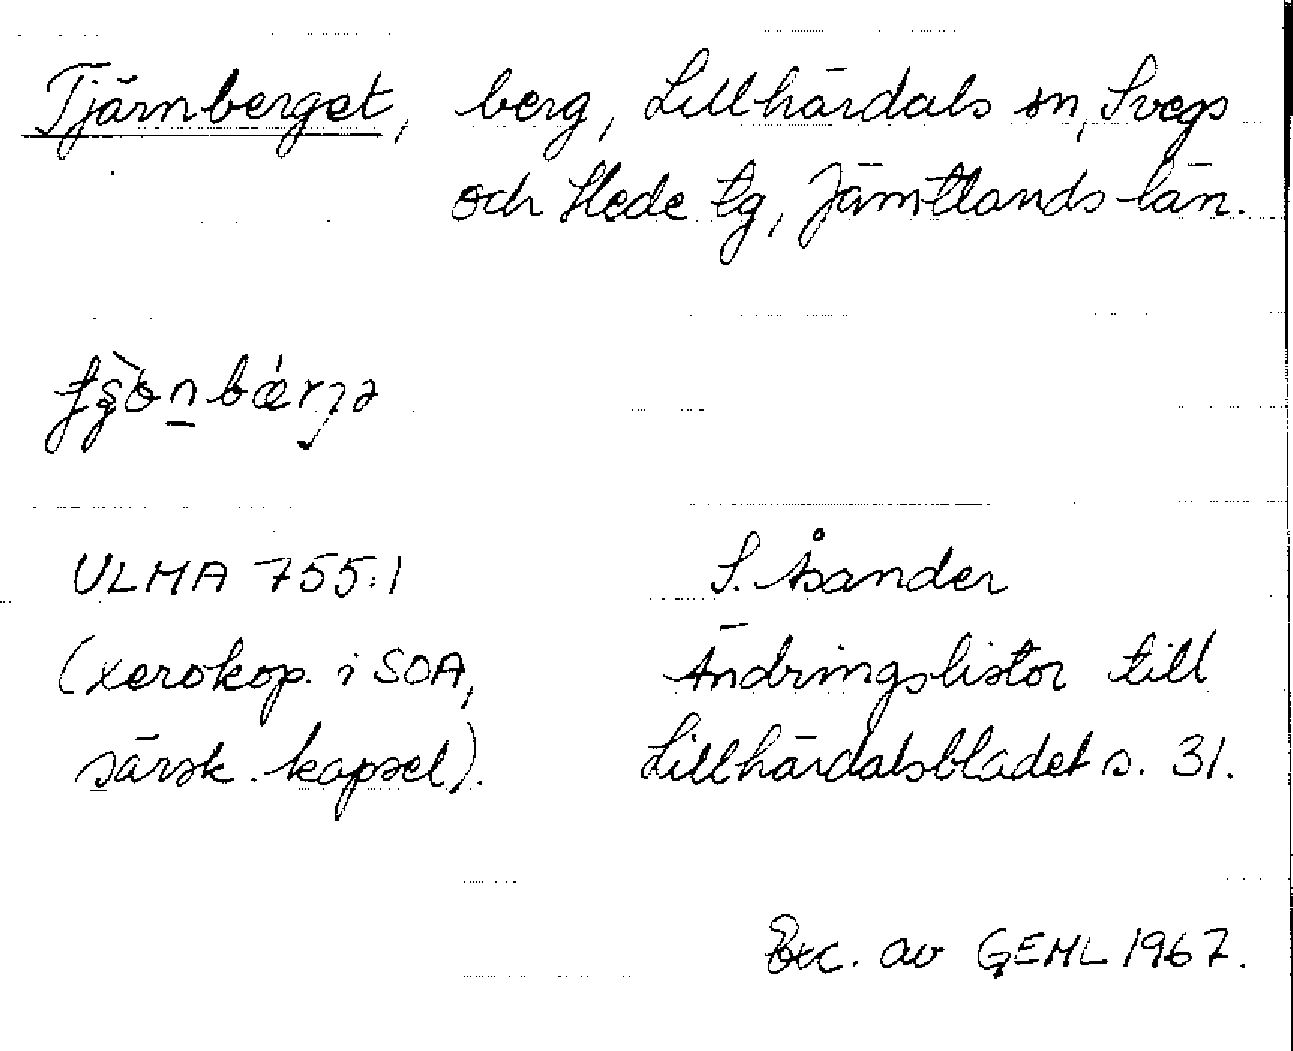 Tjärnberget, berg, Lillhärdals sn, Svegs
och Hede tg, Jämtlands län.
ULMA 755:1
(xerokop. i SOA,
särsk. kapsel).
S. Åsander
Ändringslistor till
Lillhärdalsbladet s. 31.
Exc. av GEML 1967.